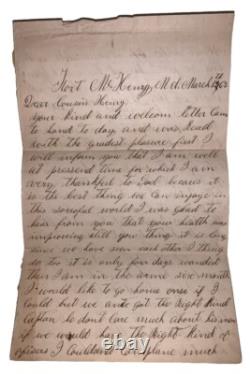 Fort McHenry, Md. March
Dear Cousin Henry
your kind and welcom letter Cam
to hand to day and was Read
with the gradest plasure first I
will inform you that I am well
at present time for which I am
very thankful to God because it
is the best thing we can injoye in
this soroful world I was good to
hear from you that your health was
improving still you thing it is long
since we have seen each other I thing
so to it is only four days
then I am in the same six month
I would like to go home over if I
could but we ante got the Right Kind
Captan he dont care much about his men
if we would have the Right Kind of
officers I Couldant Complane much
ebay